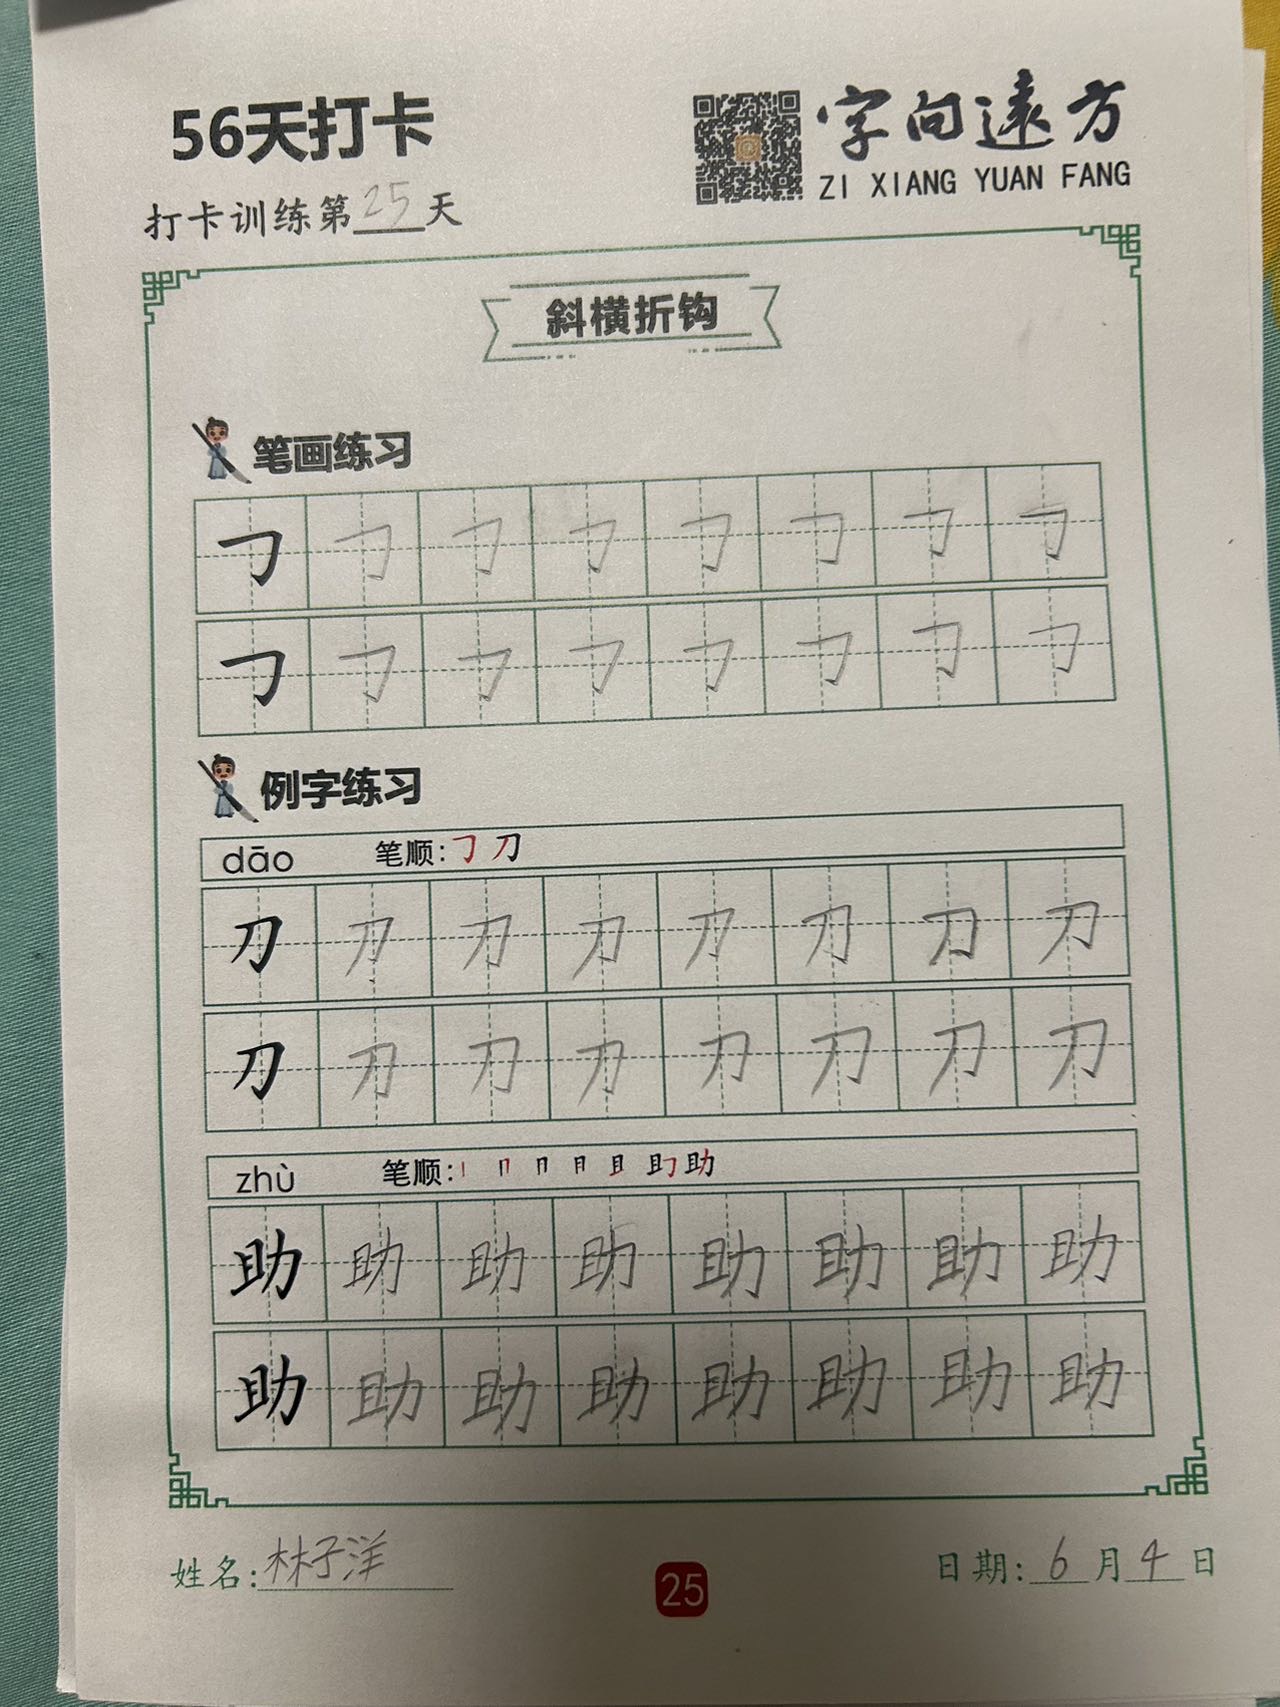 56天打卡
字向遠方
ZI XIANG YUAN FANG
打卡训练第25天
斜横折钩
笔画练习
㇆ ㇆ ㇆ ㇆ ㇆ ㇆ ㇆ ㇆
㇆ ㇆ ㇆ ㇆ ㇆ ㇆ ㇆ ㇆
例字练习
dāo 笔顺:㇆ 刀
刀 刀 刀 刀 刀 刀 刀 刀
刀 刀 刀 刀 刀 刀 刀 刀
zhù 笔顺:丨 冂 冂 月 且 助 助
助 助 助 助 助 助 助 助
助 助 助 助 助 助 助 助
姓名:林子洋
25
日期:6月4日